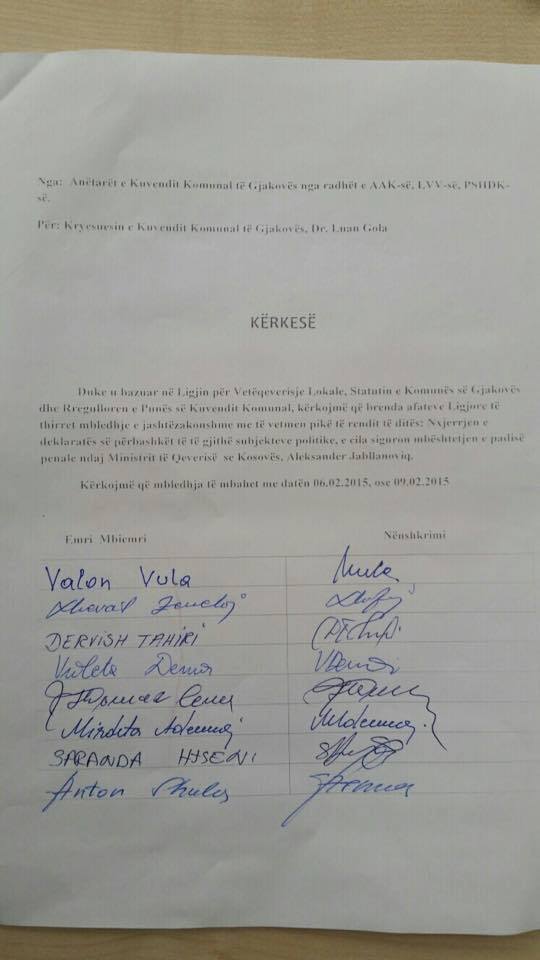 Nga: Anëtarët e Kuvendit Komunal të Gjakovës nga radhët e AAK-së, LVV-së, PSHDK-
së.
Për: Kryesuesin e Kuvendit Komunal të Gjakovës, Dr. Luan Gola
KËRKESË
Duke u bazuar në Ligjin për Vetëqeverisje Lokale, Statutin e Komunës së Gjakovës
dhe Rregulloren e Punës së Kuvendit Komunal, kërkojmë që brenda afateve Ligjore të
thirret mbledhje e jashtëzakonshme me të vetmen pikë të rendit të ditës: Nxjerrjen e
deklaratës së përbashkët të të gjithë subjekteve politike, e cila siguron mbështetjen e padisë
penale ndaj Ministrit të Qeverisë se Kosovës, Aleksander Jabllanoviq.
Kërkojmë që mbledhja të mbahet me datën 06.02.2015, ose 09.02.2015
Emri Mbiemri Nënshkrimi
Valon Vula
DERVISH TAHIRI
Dema
Mirdita Ademaj
SARANDA HISENI
Anton